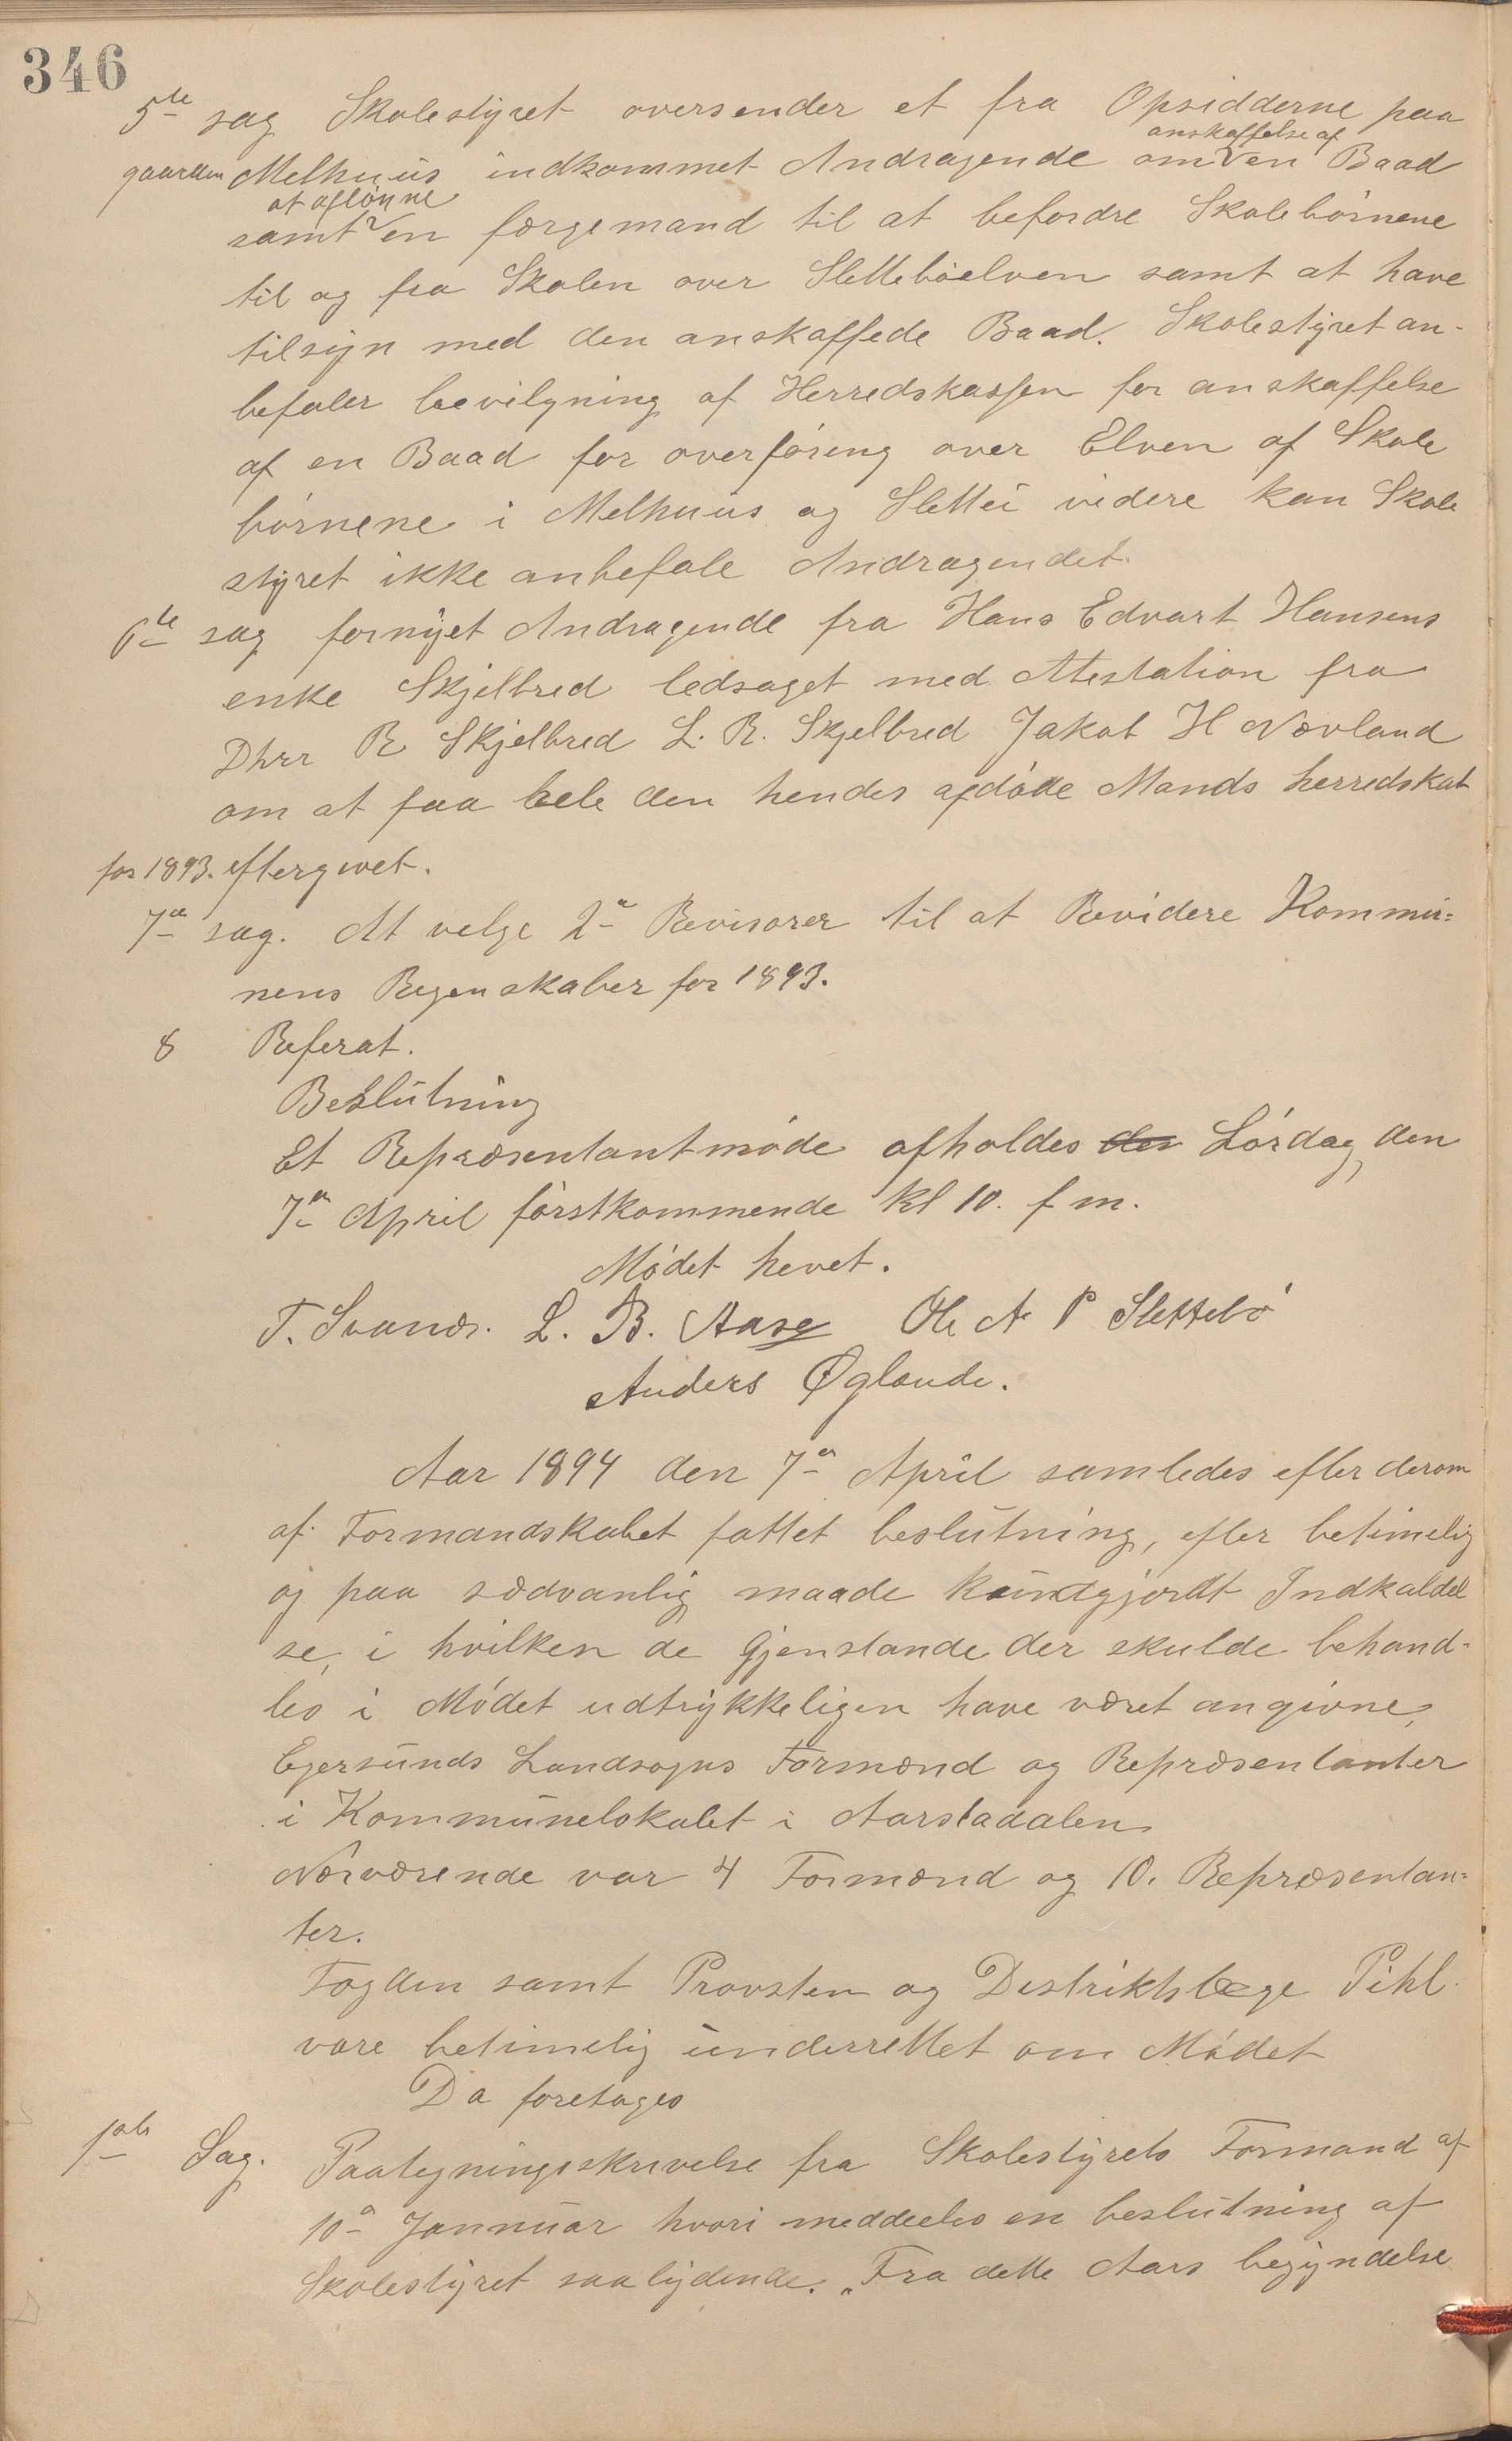 346
5te sag Skolestyret oversender et fra Opsidderne paa
gaarden Melhuus indkommet Andragende om anskaffelse af en Baad
samt at aflønne en færgemand til at befordre Skolebørnene
til og fra Skolen over Slettebøelven samt at have
tilsyn med den anskaffede Baad. Skolestyret an-
befaler bevilgning af Herredskassen for anskaffelse
af en Baad for overføring over Elven af Skole
børnene i Melhuus og Slettei videre kan Skole
styret ikke anbefale Andragendet.
6te sag fornyet Andragende fra Hans Edvart Hansens
enke Skjelbred ledsaget med Atestation fra
Dhrr R Skjelbred L. R. Skjelbred Jakob H Nævland
om at faa hele den hendes afdøde Mands herredskat
for 1893. eftergivet.
7de sag. At velge 2de Revisorer til at Revidere Kommu=
nens Regenskaber for 1893.
8 Referat.
Beslutning
Et Repræsentantmøde afholdes den Lørdag, den
7de April førstkommende kl 10. f m.
Mødet hevet.
T. Svanæs. L. B. Aase Ole A P Slettebø
Anders Øglænde.
Aar 1894 den 7de April samledes efter derom
af Formandskabet fattet beslutning, efter betimelig
og paa sædvanlig maade kundgjordt Indkaldel
se, i hvilken de Gjenstande der skulde behand-
les i Mødet udtrykkeligen have været angivne,
Egersunds Landsogns Formænd og Repræsentanter
i Kommunelokalet i Aarstadalen
Nærværende var 4 Formænd og 10. Repræsentan=
ter.
Fogden samt Provsten og Destriktslæge Pihl
vare betimelig underrettet om Mødet
Da foretages
1ste Sag. Paategningsskrivelse fra Skolestyrets Formand af
10de Jannuar hvori meddeeles en beslutning af
Skolestyret saalydende. „Fra dette Aars begyndelse